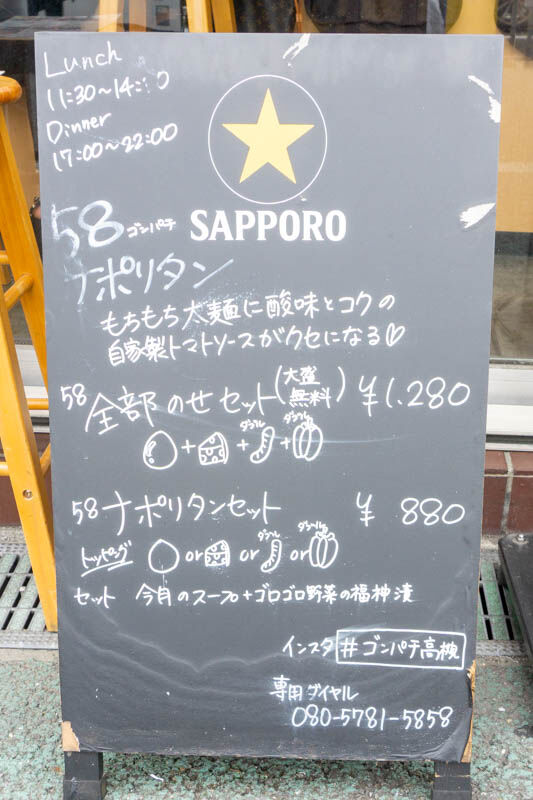 Lunch
11:30～14:30
Dinner
17:00～22:00
SAPPORO
58 ゴンパチ
ナポリタン
もちもち太麺に酸味とコクの
自家製トマトソースがクセになる♡
58 全部のせセット(大盛無料) ¥1.280
ダブル ダブル
+ + +
58 ナポリタンセット ¥ 880
ダブル ダブル
トッピング or or or
セット 今月のスープ+ゴロゴロ野菜の福神漬
インスタ #ゴンパチ高槻
専用ダイヤル
080-5781-5858